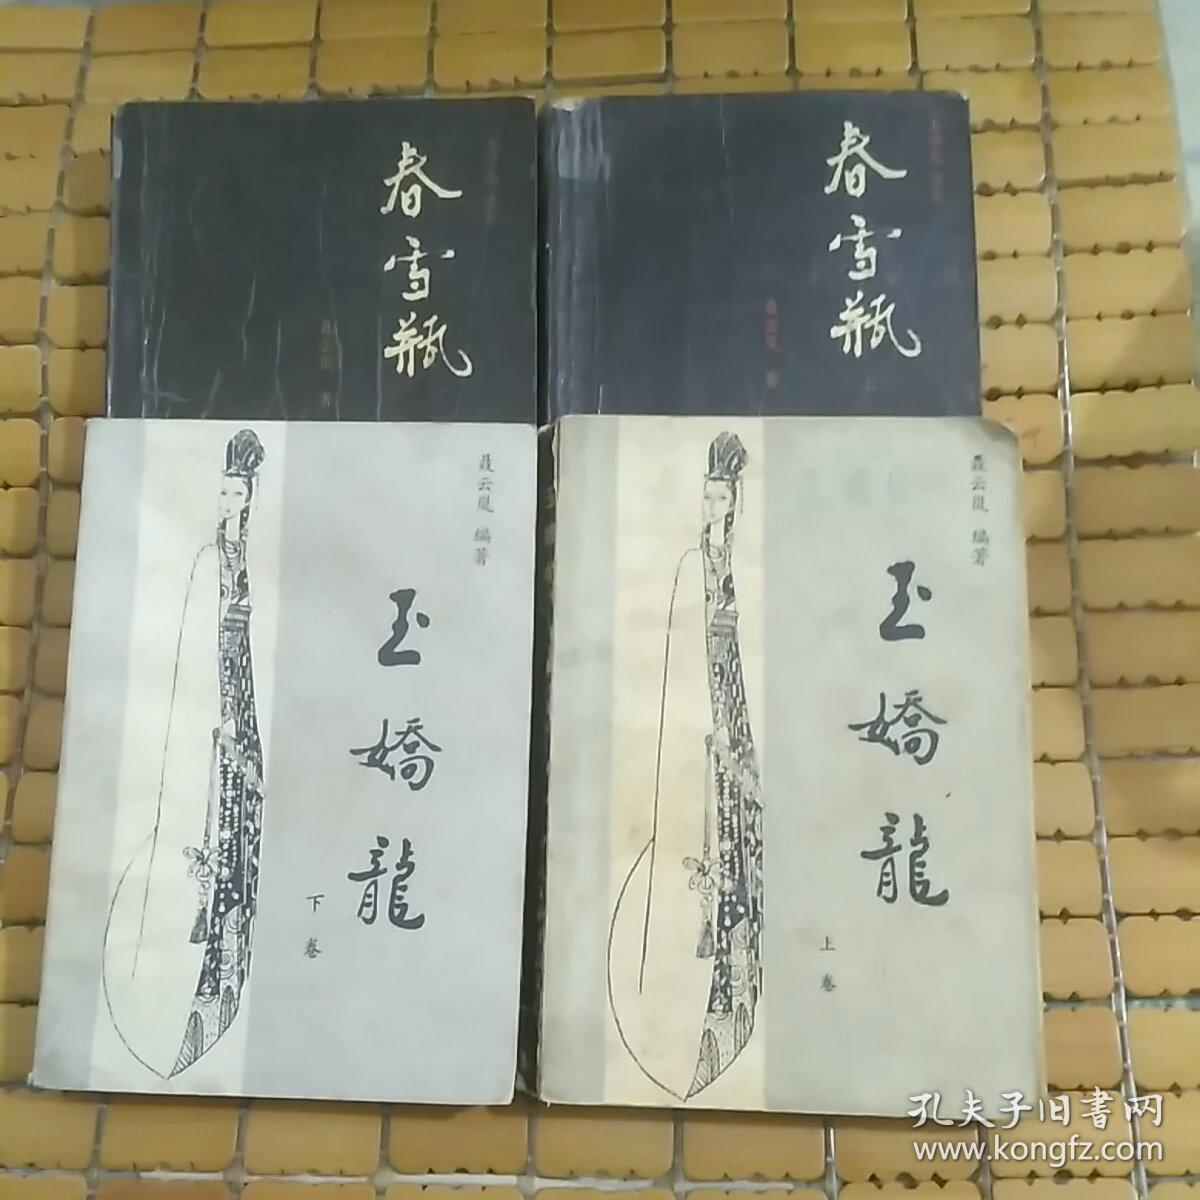 春雪瓶
聂云岚 著
春雪瓶
聂云岚 著
上
聂云岚 编著
玉嬌龍
下卷
聂云岚 编著
玉嬌龍
上卷
孔夫子旧書网
www.kongfz.com